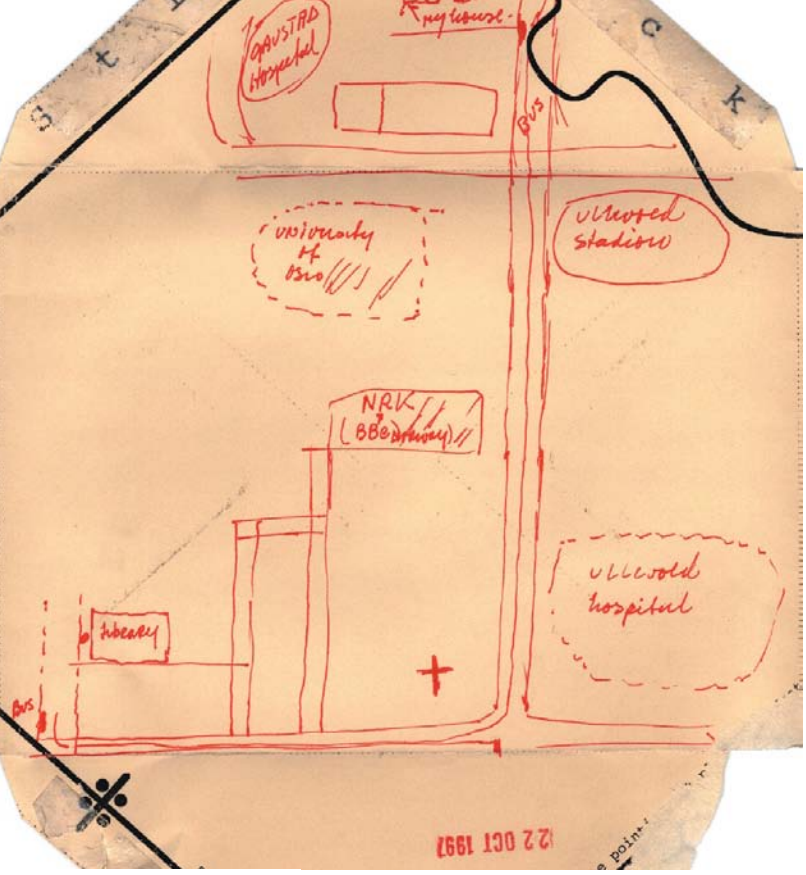 S t
c k
GAUSTAD
Hospital
my house.
BUS
University
of
Oslo
Ullevoed
Stadion
NRK
(BBC
Ullevold
hospital
Library
Bus
22 OCT 1997
e point